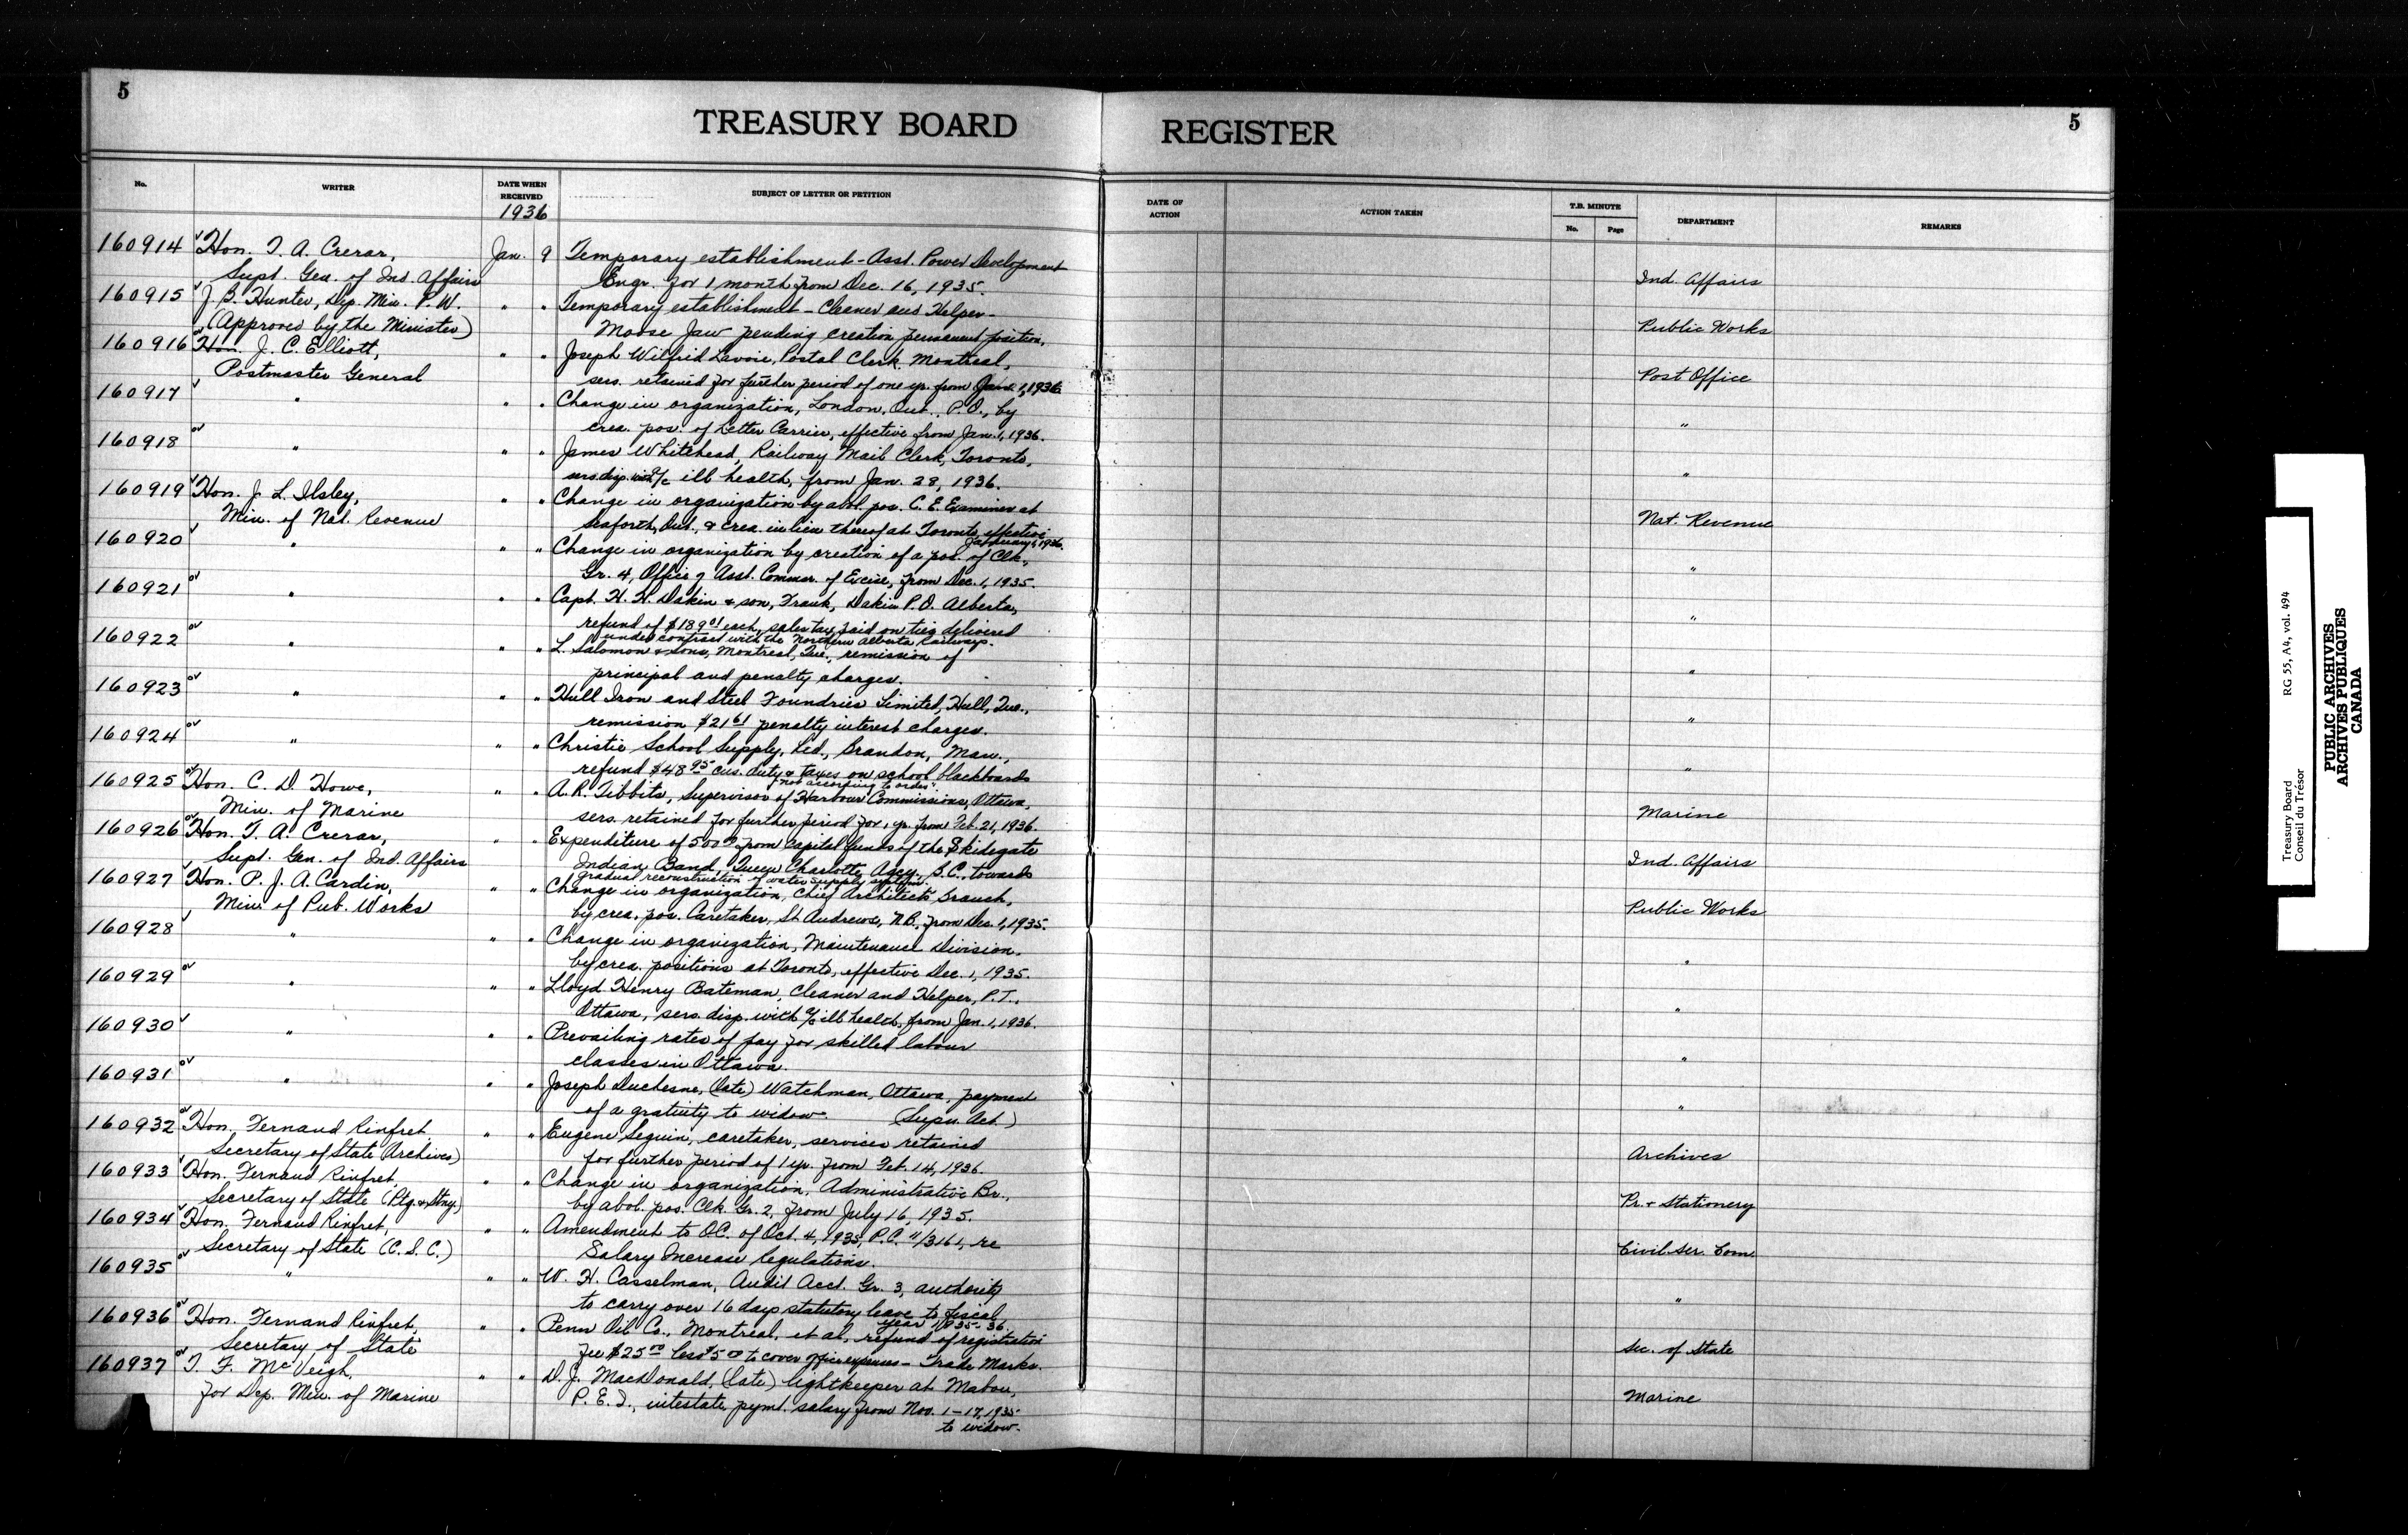 5
TREASURY BOARD REGISTER
5
No.
WRITER
DATE WHEN RECEIVED
1936
SUBJECT OF LETTER OR PETITION
DATE OF ACTION
ACTION TAKEN
T.B. MINUTE
No.
Page
DEPARTMENT
REMARKS
160914 Hon. T. A. Crerar, Jan. 9 Temporary establishment - Asst. Power Development
Supt. Gen. of Ind. Affairs Engr. for 1 month from Dec. 16, 1935. Ind. Affairs
160915 J. B. Hunter, Dep. Min. P. W. " " Temporary establishment - Cleaner and Helper -
(Approved by the Minister) Moose Jaw pending creation permanent position. Public Works
160916 Hon. J. C. Elliott, " " Joseph Wilfrid Lavoie, Postal Clerk, Montreal,
Postmaster General sers. retained for further period of one yr. from Jan. 1, 1936 Post Office
160917 " " " Change in organization, London, Ont., P.O., by
crea. pos. of Letter Carrier, effective from Jan. 1, 1936. "
160918 " " " James Whitehead, Railway Mail Clerk, Toronto,
sers. disp. with a/c ill health, from Jan. 28, 1936. "
160919 Hon. J. L. Ilsley, " " Change in organization by abol. pos. C. E. Examiner at
Min. of Nat. Revenue Seaforth, Ont., & crea. in lieu thereof at Toronto, effective Nat. Revenue
January 1, 1936.
160920 " " " Change in organization by creation of a pos. of Clk.,
Gr. 4, Office of Asst. Commr. of Excise, from Dec. 1, 1935. "
160921 " " " Capt. H. H. Dakin & son, Frank, Dakin P.O. Alberta,
refund of $189 01 each, sales tax paid on ties delivered "
under contract with the Northern Alberta Railways.
160922 " " " L. Salomon & Sons, Montreal, Que., remission of
principal and penalty charges. "
160923 " " " Hull Iron and Steel Foundries Limited, Hull, Que.,
remission $21 61 penalty interest charges. "
160924 " " " Christie School Supply, Ltd., Brandon, Man.,
refund $48 95 cus. duty & taxes on school blackboards "
not according to order.
160925 Hon. C. D. Howe, " " A. R. Tibbits, Supervisor of Harbour Commissions, Ottawa,
Min. of Marine sers. retained for further period for 1 yr. from Feb. 21, 1936. Marine
160926 Hon. T. A. Crerar, " " Expenditure of 500 00 from Capital funds of the Skidegate
Supt. Gen. of Ind. Affairs Indian Band, Queen Charlotte Agcy., B.C., towards Ind. Affairs
gradual reconstruction of water supply system.
160927 Hon. P. J. A. Cardin, " " Change in organization, Chief Architect's Branch,
Min. of Pub. Works by crea. pos. Caretaker, St. Andrews, N.B., from Dec. 1, 1935. Public Works
160928 " " " Change in organization, Maintenance Division.
by crea. positions at Toronto, effective Dec. 1, 1935. "
160929 " " " Lloyd Henry Bateman, Cleaner and Helper, P.T.,
Ottawa, sers. disp. with a/c ill health, from Jan. 1, 1936. "
160930 " " " Prevailing rates of pay for skilled labour
classes in Ottawa. "
160931 " " " Joseph Duchesne, (late) Watchman, Ottawa, payment
of a gratuity to widow. (Supn. Act.) "
160932 Hon. Fernand Rinfret, " " Eugene Seguin, caretaker, services retained
Secretary of State (Archives) for further period of 1 yr. from Feb. 14, 1936. Archives
160933 Hon. Fernand Rinfret, " " Change in organization, Administrative Br.,
Secretary of State (Ptg. & Stny.) by abol. pos. Clk. Gr. 2, from July 16, 1935. Pr. & Stationery
160934 Hon. Fernand Rinfret, " " Amendment to O.C. of Oct. 4, 1935, P.C. 11/3161, re
Secretary of State (C. S. C.) Salary Increase Regulations. Civil Ser. Com.
160935 " " " W. H. Casselman, Audit Acct. Gr. 3, authority
to carry over 16 days statutory leave to fiscal "
year 1935-36.
160936 Hon. Fernand Rinfret, " " Penn Oil Co., Montreal, et al, refund of registration
Secretary of State fee $25 00 less $5 00 to cover office expenses - Trade Marks. Sec. of State
160937 T. F. McVeigh, " " D. J. MacDonald, (late) lightkeeper at Mabou,
for Dep. Min. of Marine P. E. I., intestate, pymt. salary from Nov. 1-17, 1935 Marine
to widow.
Treasury Board
Conseil du Trésor
RG 55, A4, vol. 494
PUBLIC ARCHIVES
ARCHIVES PUBLIQUES
CANADA